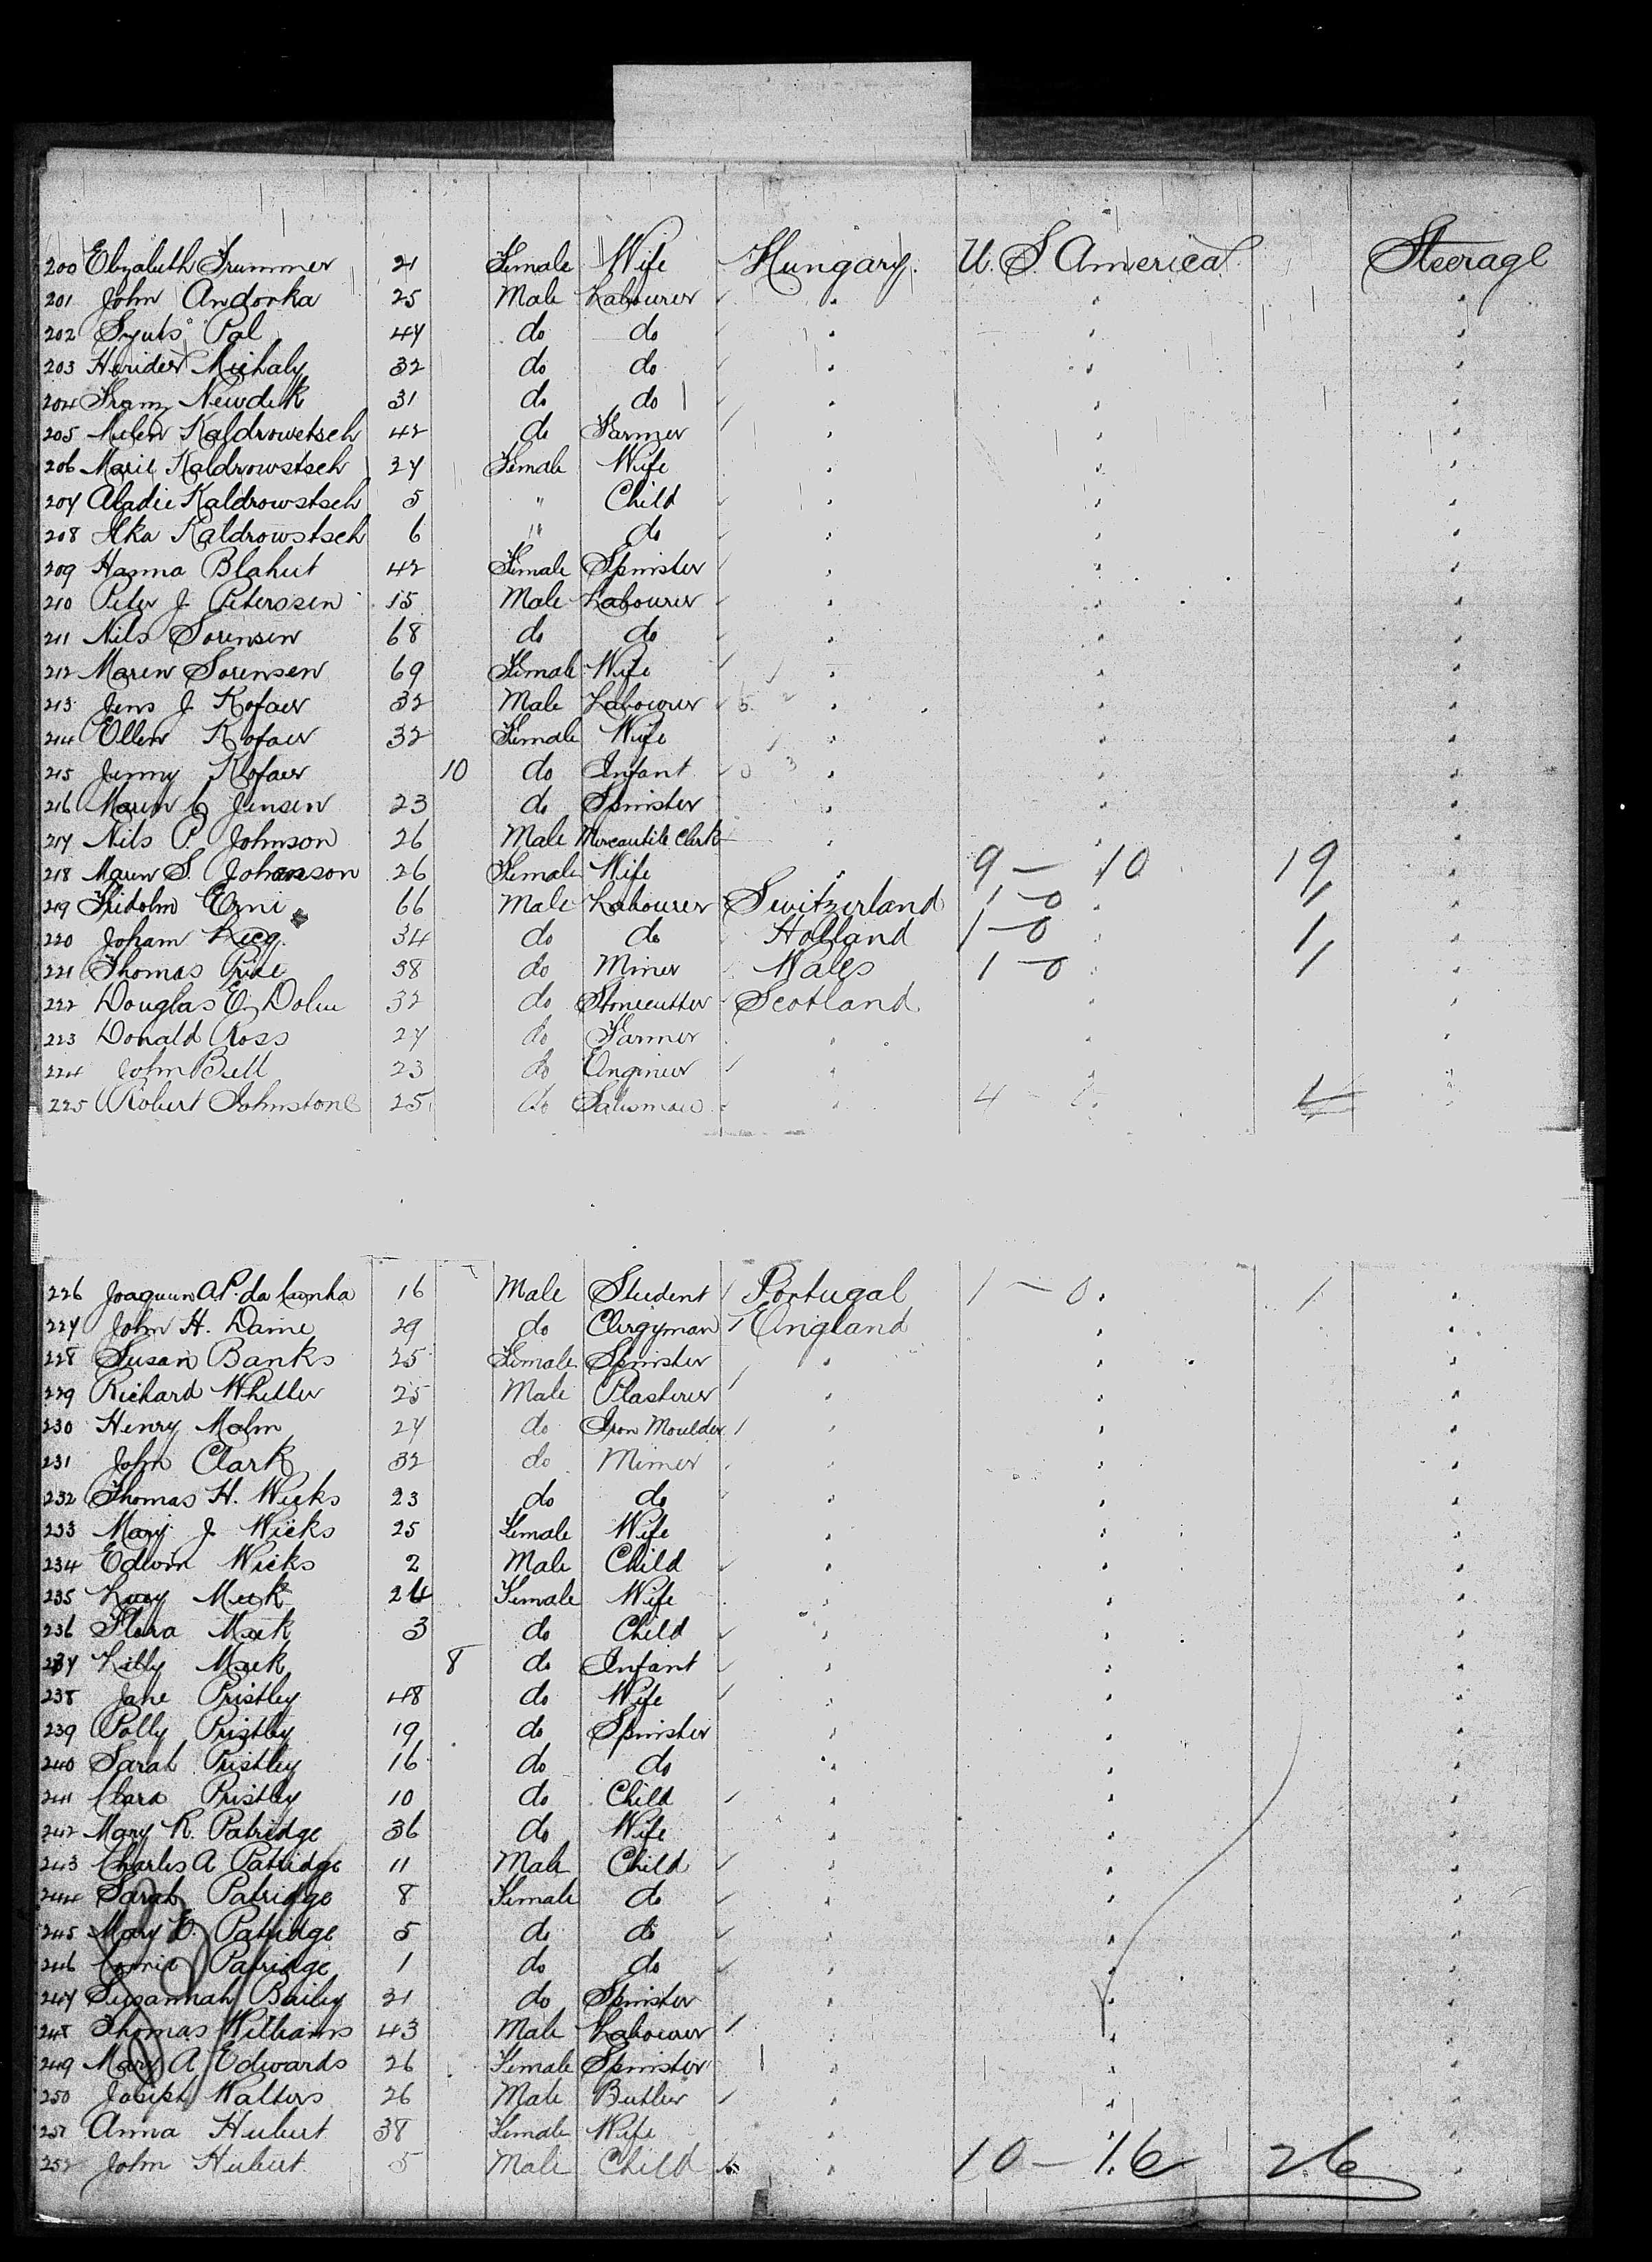 200 Elizabeth Trummer 21 Female Wife Hungary. U. S. America Steerage
201 John Andorka 25 Male Labourer " " "
202 Pal 44 do do " " "
203 Michaly 32 do do " " "
204 Franz Newdek 31 do do " " "
205 Milen Kaldrowetsch 42 do Farmer " " "
206 Marie Kaldrowstsch 27 Female Wife " " "
207 Aladie Kaldrowstsch 5 " Child " " "
208 Ilka Kaldrowstsch 6 " do " " "
209 Hanna Blahut 42 Female Spinster " " "
210 Peter J. Peterssen 15 Male Labourer " " "
211 Nils Sorensen 68 do do " " "
212 Maren Sorensen 69 Female Wife " " "
213 Jens J. Kofaer 32 Male Labourer " " "
214 Ellen Kofaer 32 Female Wife " " "
215 Jenny Kofaer 10 do Infant " " "
216 Maren C Jensen 23 do Spinster " " "
217 Nils P. Johnson 26 Male Mercantile Clerk " " "
218 Maren S. Johanson 26 Female Wife " 9 - 10 19 "
219 Fridolm Erni 66 Male Labourer Switzerland 1 - 0 " 1 "
220 Joham 34 do do Holland 1 - 0 " 1 "
221 Thomas Price 38 do Miner Wales 1 - 0 " 1 "
222 Douglas E. 32 do Stonecutter Scotland " "
223 Donald Ross 27 do Farmer " " "
224 John Bell 23 do Engineer " " "
225 Robert Johnstone 25 do Salesman " 4 - 0 4 "
226 Joaquim A. P. da Cunha 16 Male Student Portugal 1 - 0 " 1 "
227 John H. Dame 29 do Clergyman England " "
228 Susan Banks 25 Female Spinster " " "
229 Richard Whitler 25 Male Plasterer " " "
230 Henry Malm 27 do Iron Moulder " " "
231 John Clark 32 do Mimer " " "
232 Thomas H. Wicks 23 do do " " "
233 Mary J Wicks 25 Female Wife " " "
234 Edwin Wicks 2 Male Child " " "
235 Lucy Meek 24 Female Wife " " "
236 Flora Meek 3 do Child " " "
237 Lilly Meek 8 do Infant " " "
238 Jane Pristley 48 do Wife " " "
239 Polly Pristley 19 do Spinster " " "
240 Sarah Pristley 16 do do " " "
241 Clara Pristley 10 do Child " " "
242 Mary R. Patridge 36 do Wife " " "
243 Charles A Patridge 11 Male Child " " "
244 Sarah Patridge 8 Female do " " "
245 Mary E. Patridge 5 do do " " "
246 Patridge 1 do do " " "
247 Susannah Bailey 21 do Spinster " " "
248 Thomas Williams 43 Male Labourer " " "
249 Mary A Edwards 26 Female Spinster " " "
250 Joseph Walters 26 Male Butler " " "
251 Anna Hubert 38 Female Wife " " "
252 John Hubert 5 Male Child " 10 - 16 26 "